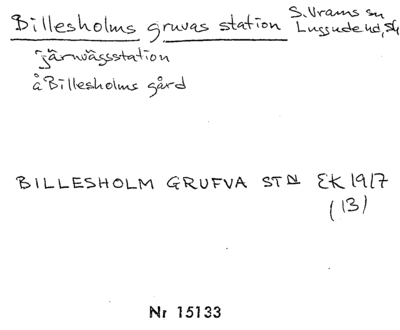 Billesholms gruvas station S. Vrams sn
Luggude hd, Sk
järnvägsstation
å Billesholms gård
BILLESHOLM GRUFVA STN EK 1917
(13)
Nr 15133